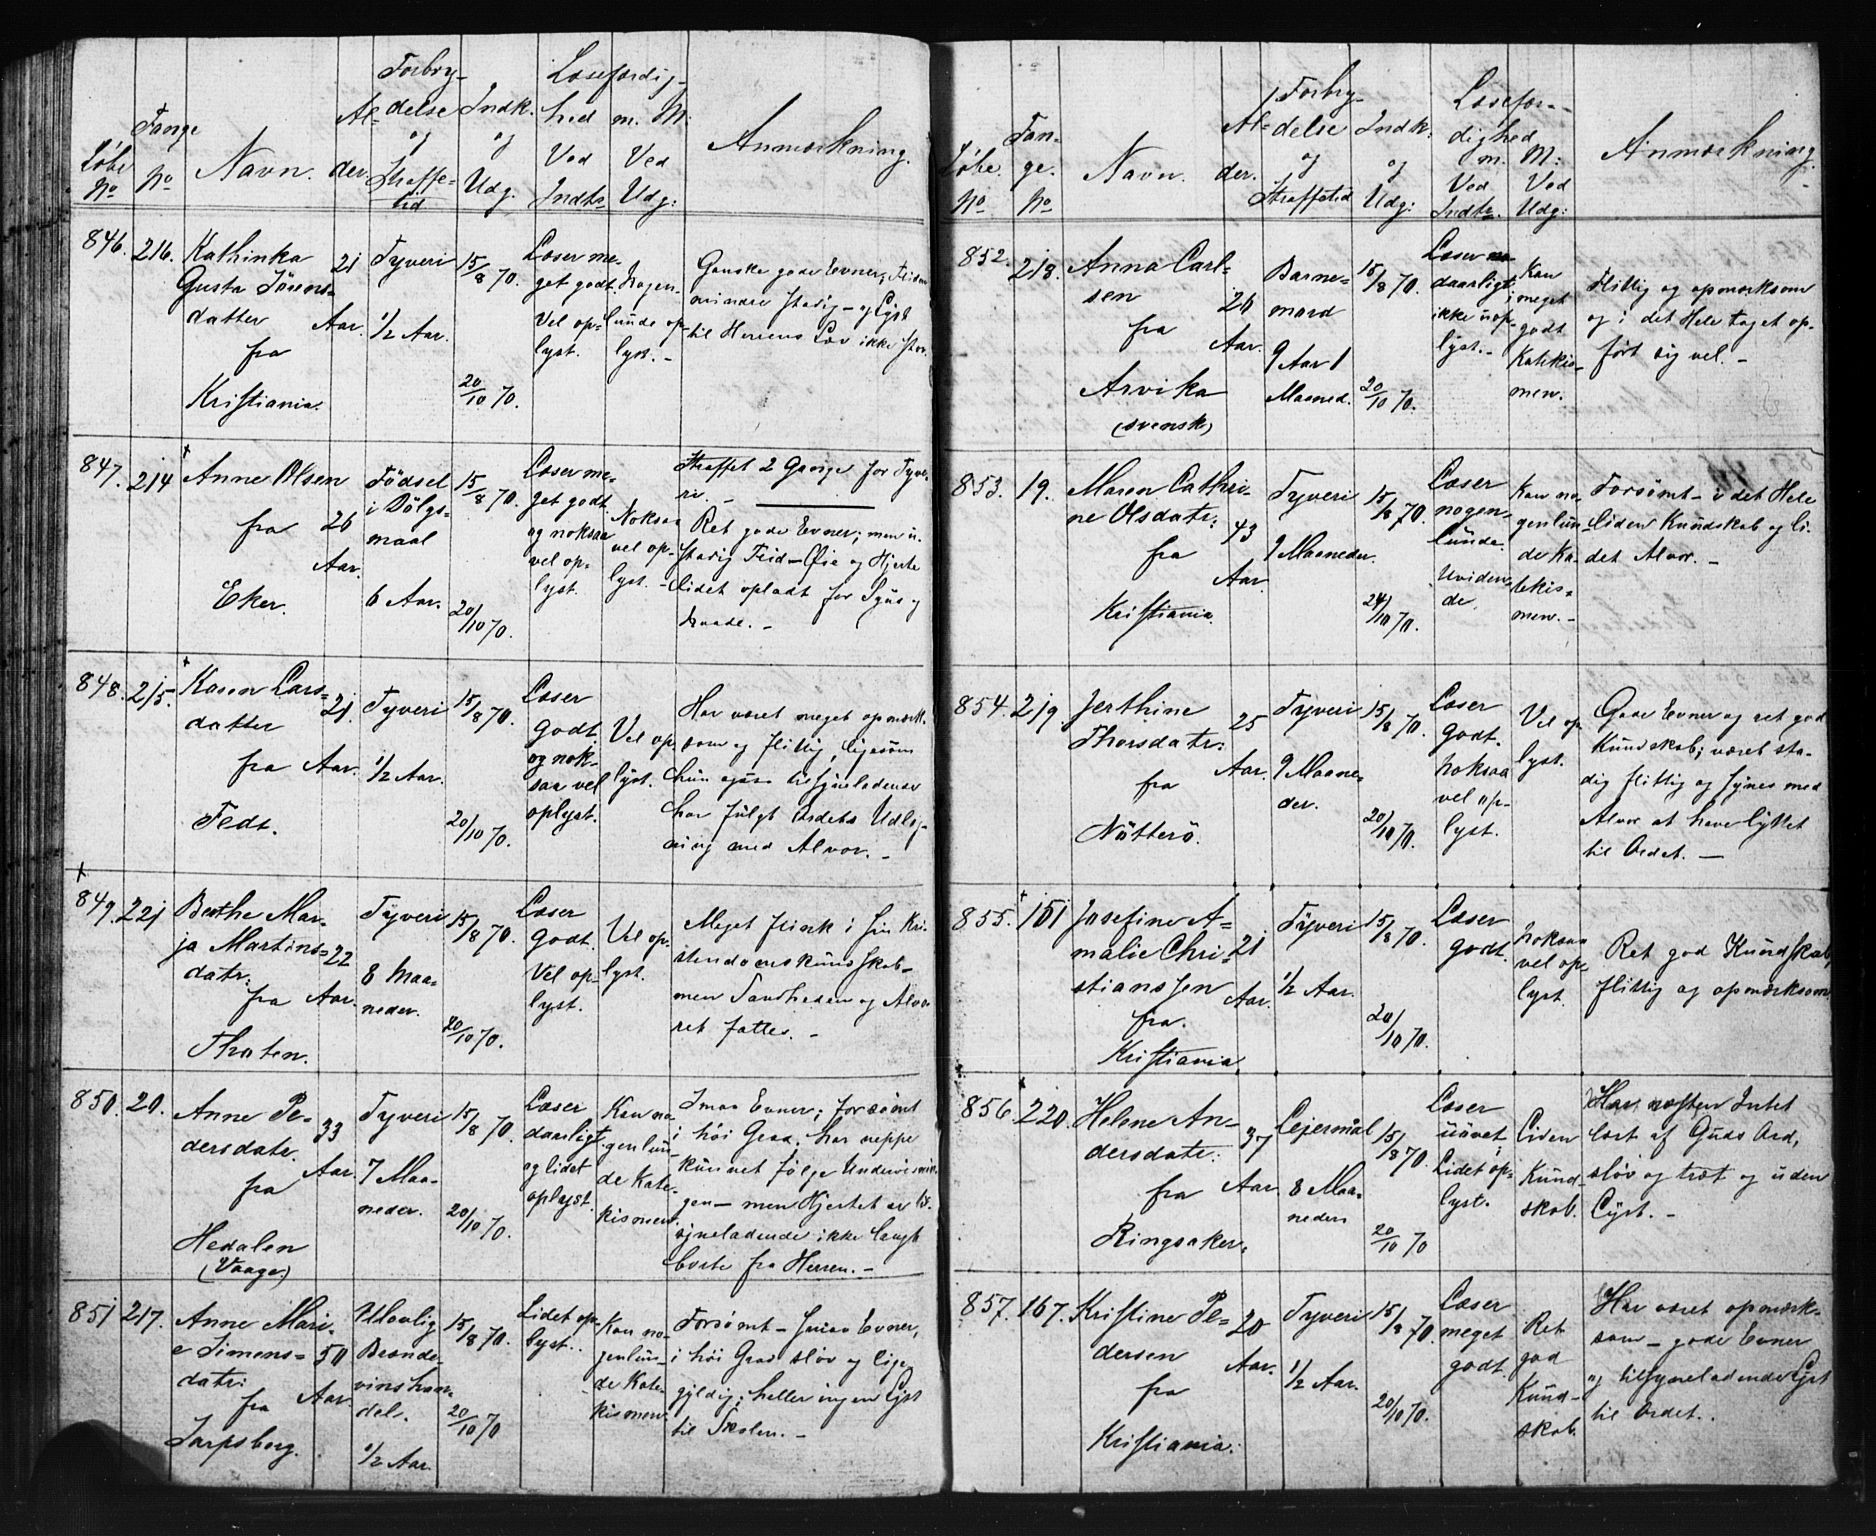 Løbe
No
Fange
No
Navn.
Al-
der.
Forbry-
delse
og
Straffe-
tid
Indk.
og
Udg.
Læsefærdig-
hed m. M:
Ved Ved
Indts Udg:
Anmærkning.
846. 216.
Kathinka
Gusta Jörens-
datter
fra
Kristiania.
21
Aar.
Tyveri
1/2 Aar.
15/8 70.
20/10 70.
Læser me-
get godt.
Vel op-
lyst.
Nogen-
lunde op-
lyst. -
Ganske gode Evner,
mindre stadig - og Lyst
til Herrens Lov ikke stor.
847. 214
Anne Olsen
fra
Eker.
26
Aar.
Födsel
i Dölgs-
maal
6 Aar.
15/8 70.
20/10 70.
Læser me-
get godt
og noksaa
vel op-
lyst.
Noksaa
vel op-
lyst. -
Straffet 2 Gange for Tyve-
ri. -
Ret gode Evner; men u-
stadig Flid - Øie og Hjerte
lidet opladt for Lyus og
Naade. -
848. 215.
Karen Lars-
datter
fra
Fedt.
21.
Aar.
Tyveri
1/2 Aar.
15/8 70.
20/10 70.
Læser
godt
og nok-
saa vel
oplyst.
Vel op-
lyst.
Har været meget opmærk-
som og flittig, ligesom
hun ogsaa tilsyneladende
har fulgt Ordets Udlæg-
ning med Alvor. -
849. 221
Berthe Mar-
ja Martins-
datr:
fra
Thoten.
22
Aar.
Tyveri
8 Maa-
neder.
15/8 70.
20/10 70.
Læser
godt.
Vel op-
lyst.
Vel op-
lyst.
Meget flink i sin Kri-
stendomskundskab -
men Sandheden og Alvo-
ret fattes. -
850. 20.
Anne Pe-
dersdatr.
fra
Hedalen
(Vaage)
33
Aar.
Tyveri
7 Maa-
neder.
15/8 70.
20/10 70.
Læser
daarligt
og lidet
oplyst.
Kan no-
genlun-
de Kate-
kismen.
Smaa Evner; forsömt
i höi Grad, har neppe
kunnet fölge Undervisnin-
gen - men Hjertet er til-
syneladende ikke langt
borte fra Herren. -
851 217.
Anne Mari-
e Simens-
datr:
fra
Sarpsborg.
50
Aar.
Ulovlig
Brænde-
vinshan-
del.
1/2 Aar.
15/8 70.
20/10 70
Lidet op-
lyst.
Kan no-
genlun-
de Kate-
kismen.
Forsömt - smaa Evner,
i höi Grad slöv og lige-
gyldig; heller ingen Lyst
til Skolen. -
Løbe.
No
Fan-
ge.
No
Navn.
Al-
der.
Forbry-
delse
og
Straffetid
Indk:
og
Udg:
Læsefær-
dighed
m. M:
Ved Ved
Indts. Udg:
Anmærkning.
852. 218.
Anna Carl-
sen
fra
Arvika
(svensk)
26
Aar.
Barne-
mord
9 Aar 1
Maaned.
15/8 70.
20/10 70.
Læser
daarligt,
ikke uop-
lyst. -
Kan
meget
godt
Katekis-
men.
Flittig og opmærksom
og i det Hele taget op-
fört sig vel. -
853. 19.
Maren Cathri-
ne Olsdatr:
fra
Kristiania.
43
Aar.
Tyveri
9 Maaneder.
15/8 70.
24/10 70.
Læser
nogen-
lunde.
Uviden-
de.
Kan no-
genlun-
de Ka-
tekis-
men. -
Forsömt - i det Hele
liden Kundskab og li-
det Alvor. -
854. 219
Jerthine
Thorsdatr:
fra
Nötterö.
25
Aar.
Tyveri
9 Maane-
der.
15/8 70.
20/10 70.
Læser
godt.
Noksaa
vel op-
lyst.
Vel op-
lyst.
Gode Evner og ret god
Kundskab; været sta-
dig flittig og synes med
Alvor at have lyttet
til Ordet. -
855. 151
Josefine A-
malie Chri-
stiansen
fra.
Kristiania.
21
Aar.
Tyveri
1/2 Aar.
15/8 70.
20/10 70.
Læser
godt.
Noksaa
vel op-
lyst.
Ret god Kundskab,
flittig og opmærksom
856. 220.
Helene An-
dersdatr:
fra
Ringsaker.
37
Aar.
Leiermål
8 Maa-
neder
15/8 70.
20/10 70
Læser
uövet,
Lidet op-
lyst.
Liden
Kund-
skab.
Har næsten Intet
lært af Guds Ord,
slöv og træt og uden
Lyst. -
857. 167.
Kristine Pe-
dersen
fra
Kristiania.
20
Aar.
Tyveri
1/2 Aar.
15/8 70.
20/10 70.
Læser
meget
godt.
Ret
god
Kund-
skab.
Har været opmærk-
som - gode Evner
og tilsyneladende Lyst
til Ordet.